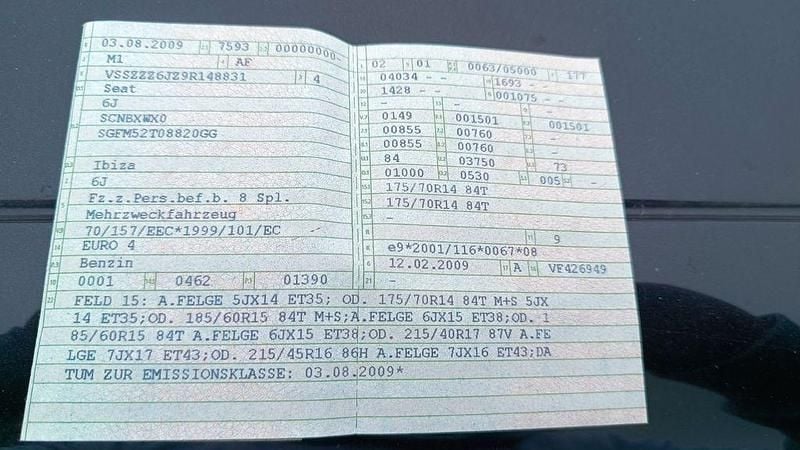 03.08.2009 7593 00000000-
M1 AF
VSSZZZ6JZ9R148831 4
Seat
6J
SCNBXWX0
SGFM52T08820GG
Ibiza
6J
Fz.z.Pers.bef.b. 8 Spl.
Mehrzweckfahrzeug
70/157/EEC*1999/101/EC
EURO 4
Benzin
0001 0462 01390
02 01 0063/05000 177
04034 - - 1693 - -
1428 - - 001075 - -
- - -
0149 001501 001501
00855 00760 -
00855 00760 -
84 03750 73
01000 0530 005 -
175/70R14 84T
175/70R14 84T
-
9
e9*2001/116*0067*08
12.02.2009 A VF426949
-
FELD 15: A.FELGE 5JX14 ET35; OD. 175/70R14 84T M+S 5JX
14 ET35;OD. 185/60R15 84T M+S;A.FELGE 6JX15 ET38;OD. 1
85/60R15 84T A.FELGE 6JX15 ET38;OD. 215/40R17 87V A.FE
LGE 7JX17 ET43;OD. 215/45R16 86H A.FELGE 7JX16 ET43;DA
TUM ZUR EMISSIONSKLASSE: 03.08.2009*